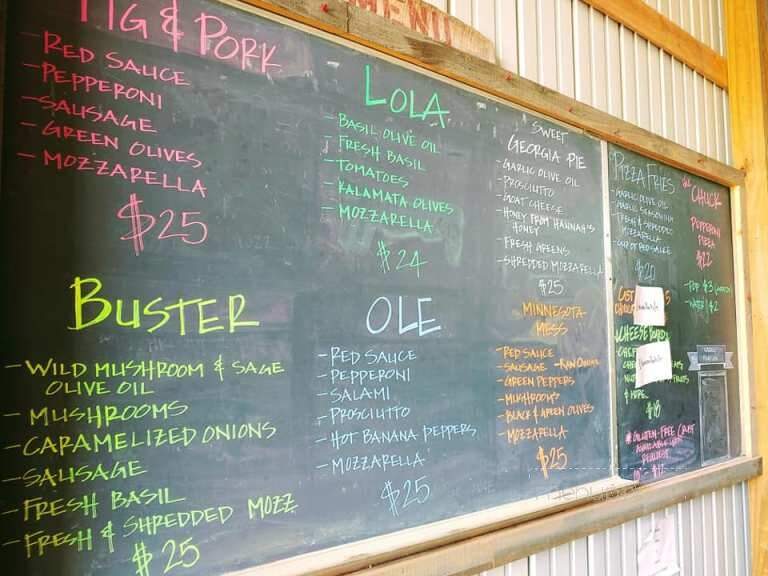 MENU
PIG & PORK
- RED SAUCE
- PEPPERONI
- SAUSAGE
- GREEN OLIVES
- MOZZARELLA
$25
LOLA
- BASIL OLIVE OIL
- FRESH BASIL
- TOMATOES
- KALAMATA OLIVES
- MOZZARELLA
$24
SWEET
GEORGIA PIE
- GARLIC OLIVE OIL
- PROSCIUTTO
- GOAT CHEESE
- HONEY FROM HANNAH'S
HONEY
- FRESH GREENS
- SHREDDED MOZZARELLA
$25
PIZZA FRIES
- GARLIC OLIVE OIL
- GARLIC SEASONING
- FRESH & SHREDDED
MOZZARELLA
- CUP OF RED SAUCE
$20
CHUCK
PEPPERONI
PIZZA
$22
- POP $3
- WATER $2
BUSTER
- WILD MUSHROOM & SAGE
OLIVE OIL
- MUSHROOMS
- CARAMELIZED ONIONS
- SAUSAGE
- FRESH BASIL
- FRESH & SHREDDED MOZZ
$25
OLE
- RED SAUCE
- PEPPERONI
- SALAMI
- PROSCIUTTO
- HOT BANANA PEPPERS
- MOZZARELLA
$25
MINNESOTA
MESS
- RED SAUCE
- SAUSAGE - RAW ONION
- GREEN PEPPERS
- MUSHROOMS
- BLACK & GREEN OLIVES
- MOZZARELLA
$25
CHEESE
& MORE
$18
* GLUTEN-FREE CRUST
AVAILABLE UPON
REQUEST